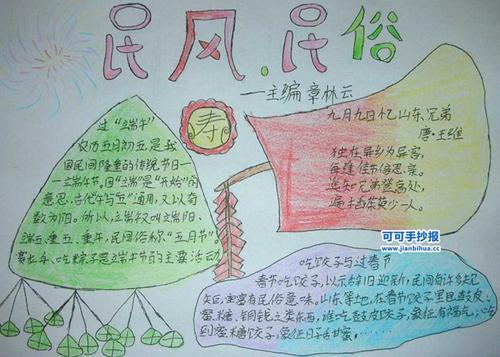 民风.民俗
——主编 章林云
过“端午”
农历五月初五是我
国民间隆重的传统节日—
—端午节。因“端”是“开始”的
意思，古代午与“五”通用，又以奇
数为阳。所以，端午又叫端阳、
端五、重五、重午，民间俗称“五月节”。
赛龙舟、吃粽子是端午节的主要活动
寿
九月九日忆山东兄弟
唐·王维
独在异乡为异客，
每逢佳节倍思亲。
遥知兄弟登高处，
遍插茱萸少一人。
可可手抄报
www.jianbihua.cc
吃饺子与过春节
春节吃饺子，以示辞旧迎新，民间有许多忌
矢后，更富有民俗意味。山东等地，在春节饺子里包鼓皮、
蜜、糖、铜钱之类东西，谁吃鼓皮饺子，象征有福气，吃
到蜜糖饺子，象征日子甜蜜，……